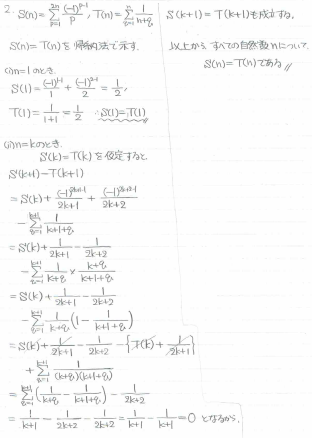 2. S(n)=∑_{p=1}^{2n} (-1)^{p-1}/p , T(n)=∑_{q=1}^{n} 1/(n+q)
S(n)=T(n)を帰納法で示す.
(i)n=1のとき.
S(1)=(-1)^{1-1}/1+(-1)^{2-1}/2=1/2,
T(1)=1/(1+1)=1/2 ∴S(1)=T(1)
(ii)n=kのとき.
S(k)=T(k)を仮定すると
S(k+1)-T(k+1)
=S(k)+(-1)^{2k+1-1}/(2k+1)+(-1)^{2k+2-1}/(2k+2)
-∑_{q=1}^{k+1} 1/(k+1+q)
=S(k)+1/(2k+1)-1/(2k+2)
-∑_{q=1}^{k+1} 1/(k+q)×(k+q)/(k+1+q)
=S(k)+1/(2k+1)-1/(2k+2)
-∑_{q=1}^{k+1} 1/(k+q)(1-1/(k+1+q))
=S(k)+1/(2k+1)-1/(2k+2)-{T(k)+1/(2k+1)}
+∑_{q=1}^{k+1} 1/((k+q)(k+1+q))
=∑_{q=1}^{k+1}(1/(k+q)-1/(k+1+q))-1/(2k+2)
=1/(k+1)-1/(2k+2)-1/(2k+2)=1/(k+1)-1/(k+1)=0 となるから.
S(k+1)=T(k+1)も成立する.
以上から、すべての自然数nについて.
S(n)=T(n)である //